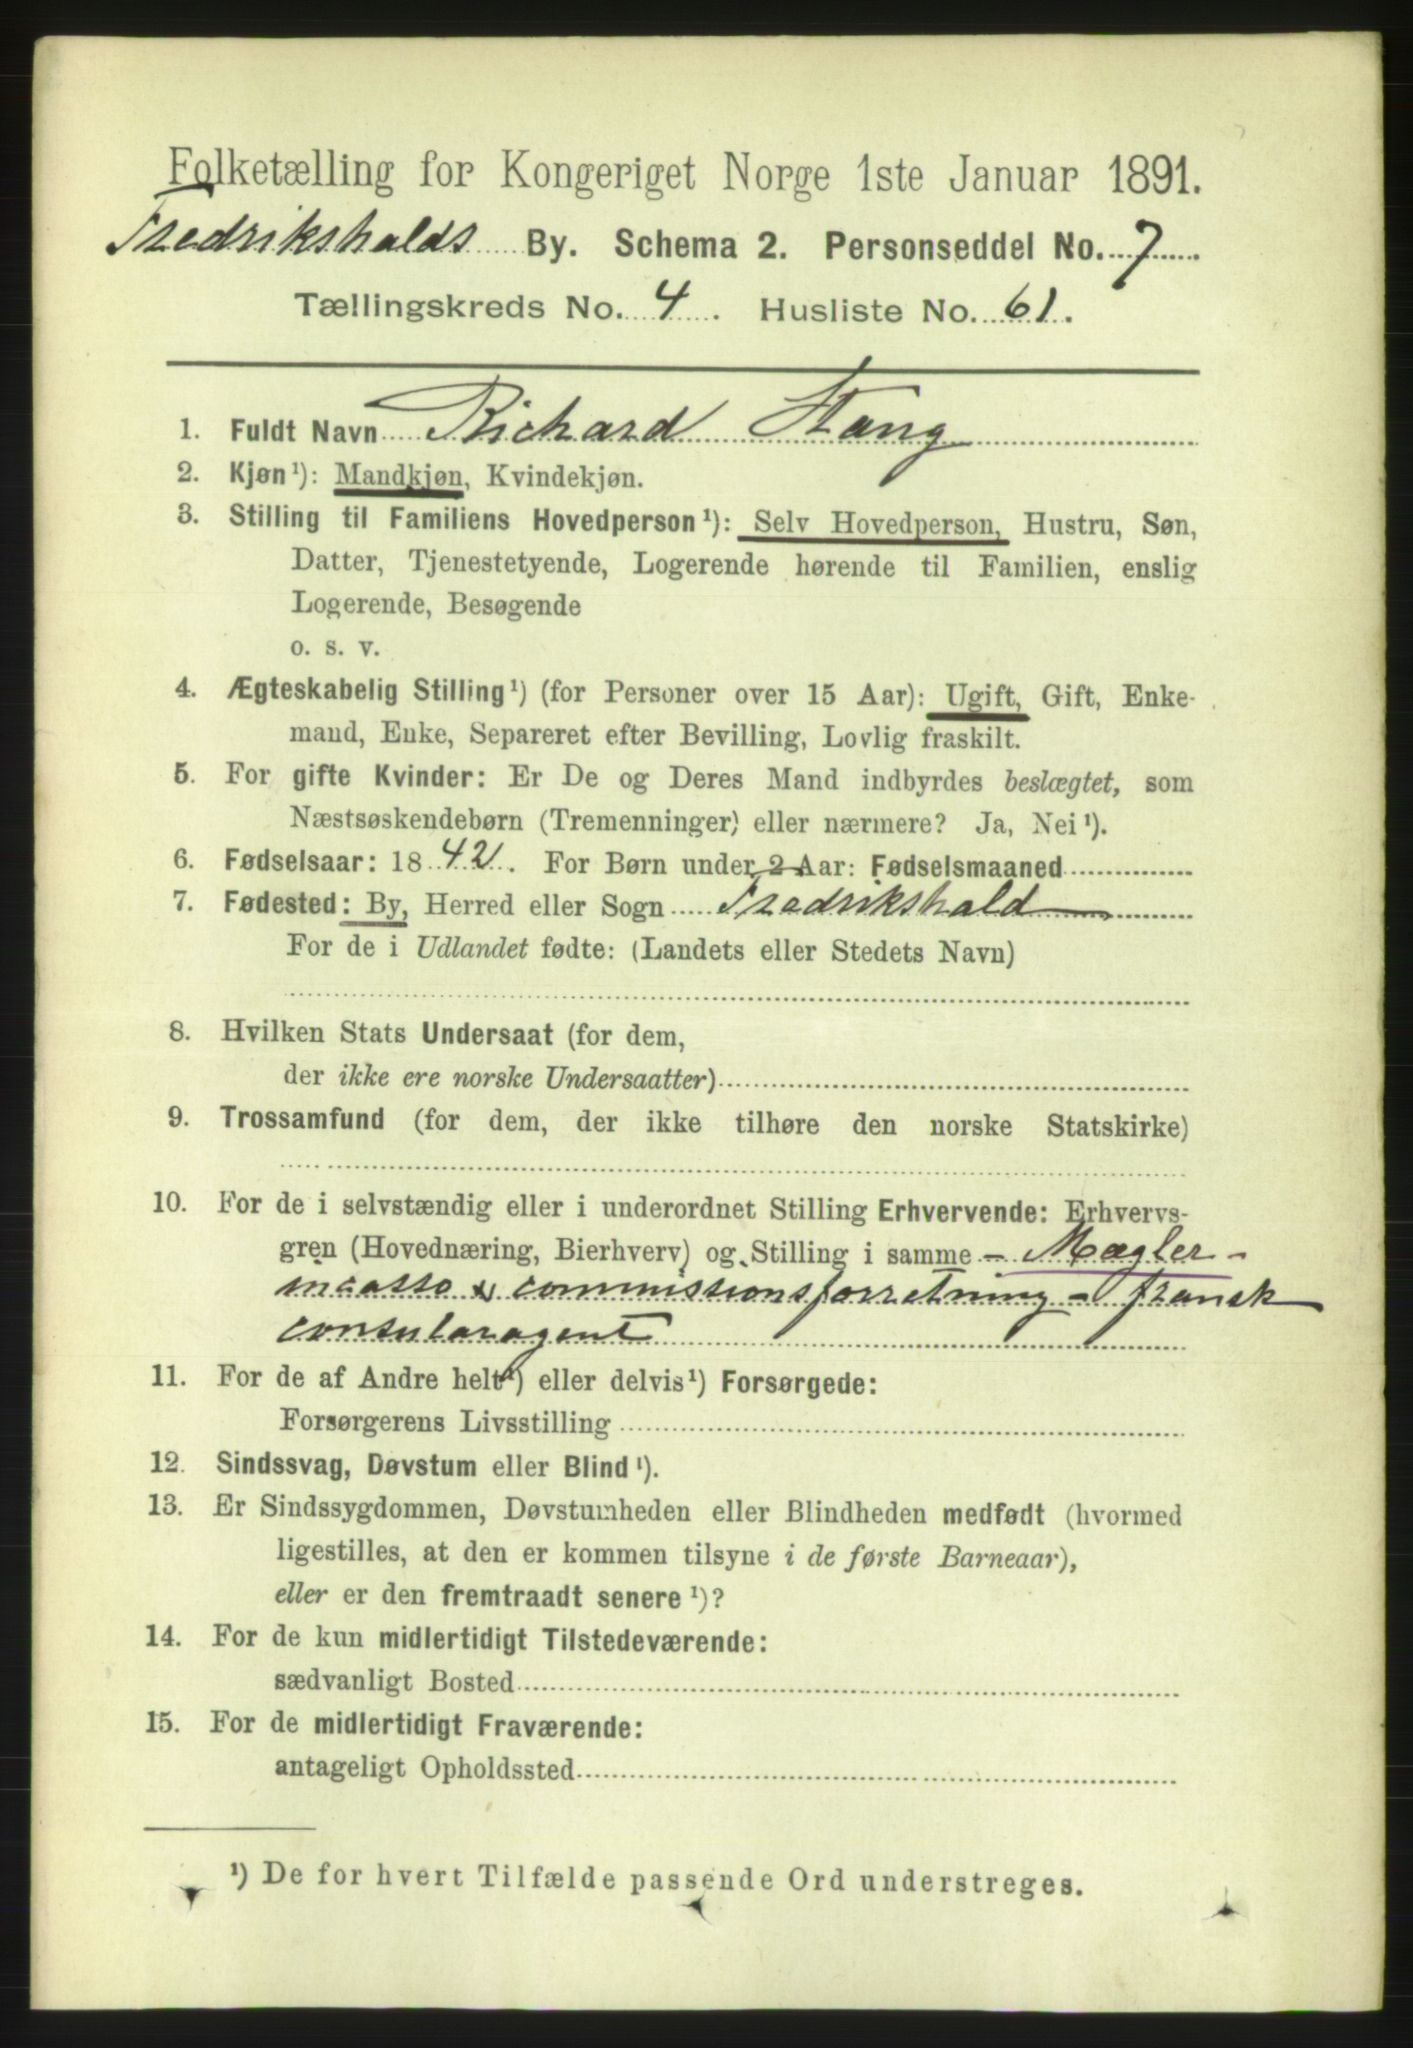 Folketælling for Kongeriget Norge 1ste Januar 1891.
Fredrikshalds By. Schema 2. Personseddel No. 7
Tællingskreds No. 4. Husliste No. 61.
1. Fuldt Navn Richard Stang
2. Kjøn¹): Mandkjøn, Kvindekjøn.
3. Stilling til Familiens Hovedperson¹): Selv Hovedperson, Hustru, Søn,
Datter, Tjenestetyende, Logerende hørende til Familien, enslig
Logerende, Besøgende
o. s. v.
4. Ægteskabelig Stilling¹) (for Personer over 15 Aar): Ugift, Gift, Enke-
mand, Enke, Separeret efter Bevilling, Lovlig fraskilt.
5. For gifte Kvinder: Er De og Deres Mand indbyrdes beslægtet, som
Næstsøskendebørn (Tremenninger) eller nærmere? Ja, Nei¹).
6. Fødselsaar: 1842. For Børn under 2 Aar: Fødselsmaaned
7. Fødested: By, Herred eller Sogn Fredrikshald
For de i Udlandet fødte: (Landets eller Stedets Navn)
8. Hvilken Stats Undersaat (for dem,
der ikke ere norske Undersaatter)
9. Trossamfund (for dem, der ikke tilhøre den norske Statskirke)
10. For de i selvstændig eller i underordnet Stilling Erhvervende: Erhvervs-
gren (Hovednæring, Bierhverv) og Stilling i samme - Mægler -
incasso & commissionsforretning - fransk
consularagent
11. For de af Andre helt¹) eller delvis¹) Forsørgede:
Forsørgerens Livsstilling
12. Sindssvag, Døvstum eller Blind¹).
13. Er Sindssygdommen, Døvstumheden eller Blindheden medfødt (hvormed
ligestilles, at den er kommen tilsyne i de første Barneaar),
eller er den fremtraadt senere¹)?
14. For de kun midlertidigt Tilstedeværende:
sædvanligt Bosted
15. For de midlertidigt Fraværende:
antageligt Opholdssted
¹) De for hvert Tilfælde passende Ord understreges.